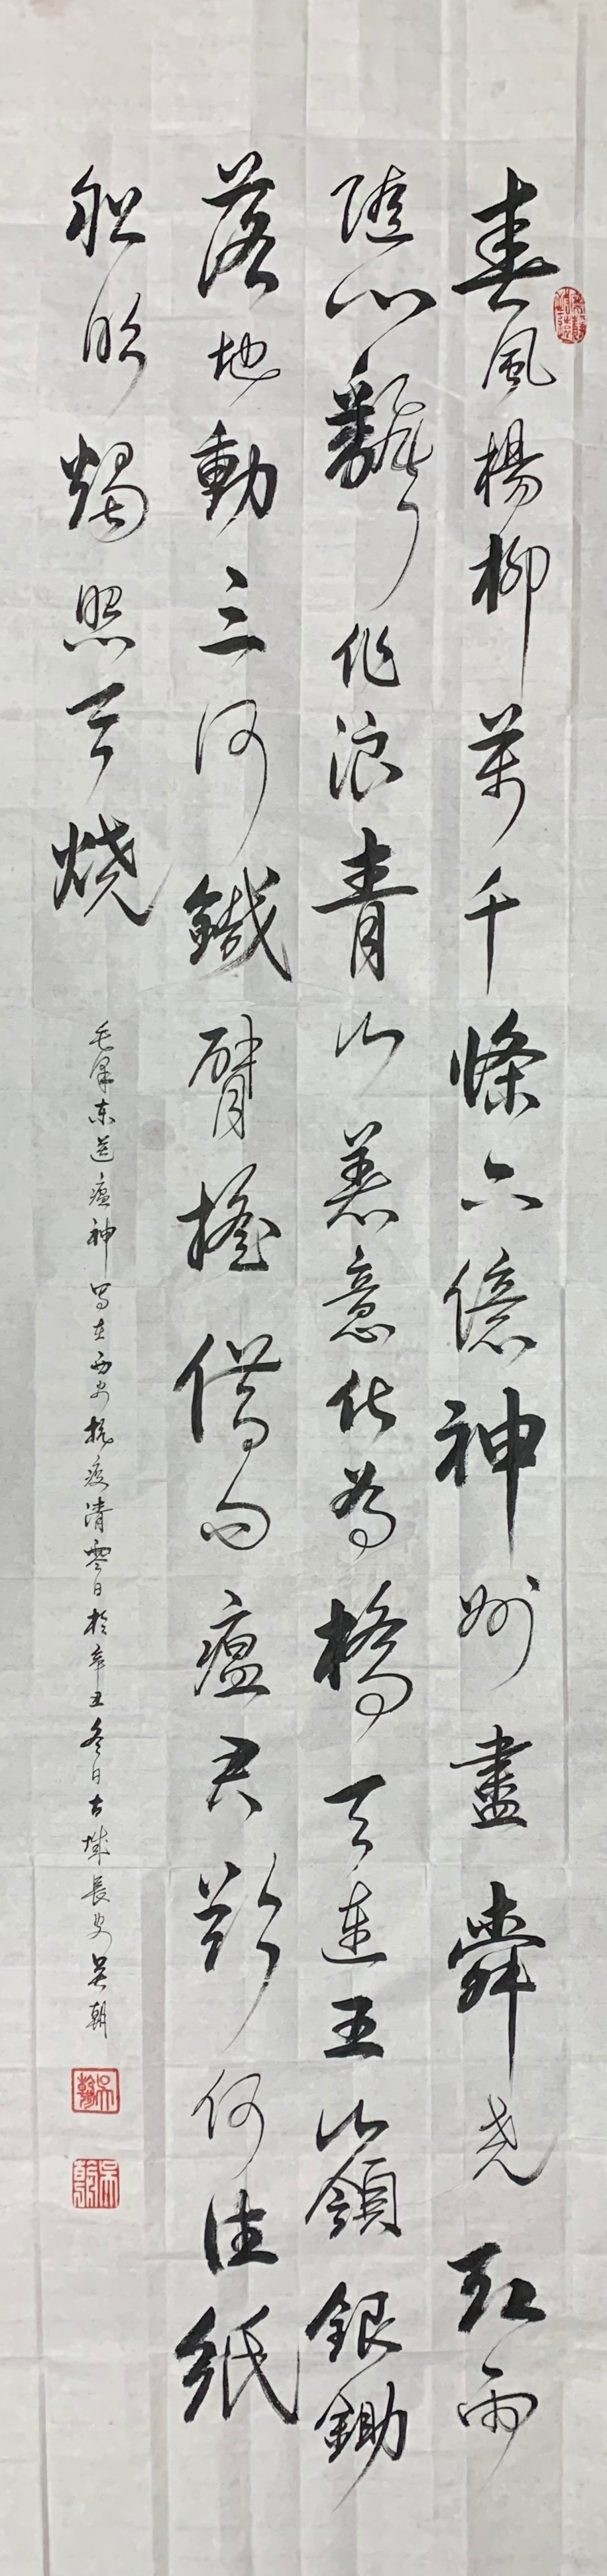 春風楊柳萬千條六億神州盡舜堯紅雨
隨心飜作浪青山着意化為橋天連五嶺銀鋤
落地動三河鐵臂搖借問瘟君欲何往紙
船明燭照天燒
毛泽东送瘟神写在西安抗疫清零日於辛丑冬日古城長安吴朝